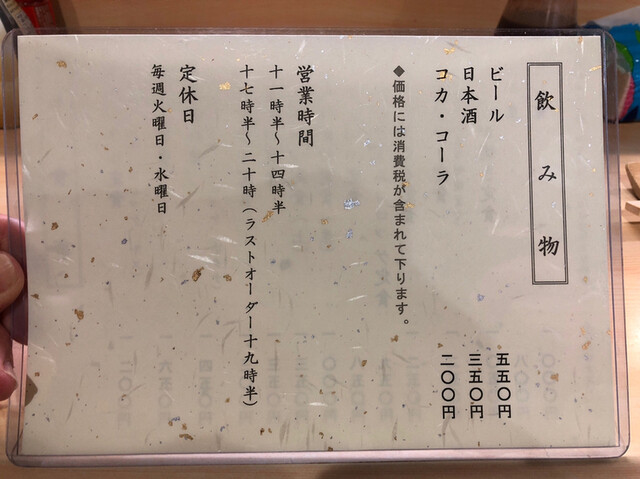 飲み物
ビール 五五〇円
日本酒 三五〇円
コカ・コーラ 二〇〇円
◆価格には消費税が含まれて下ります。
営業時間
十一時半〜十四時半
十七時半〜二十時（ラストオーダー十九時半）
定休日
毎週火曜日・水曜日